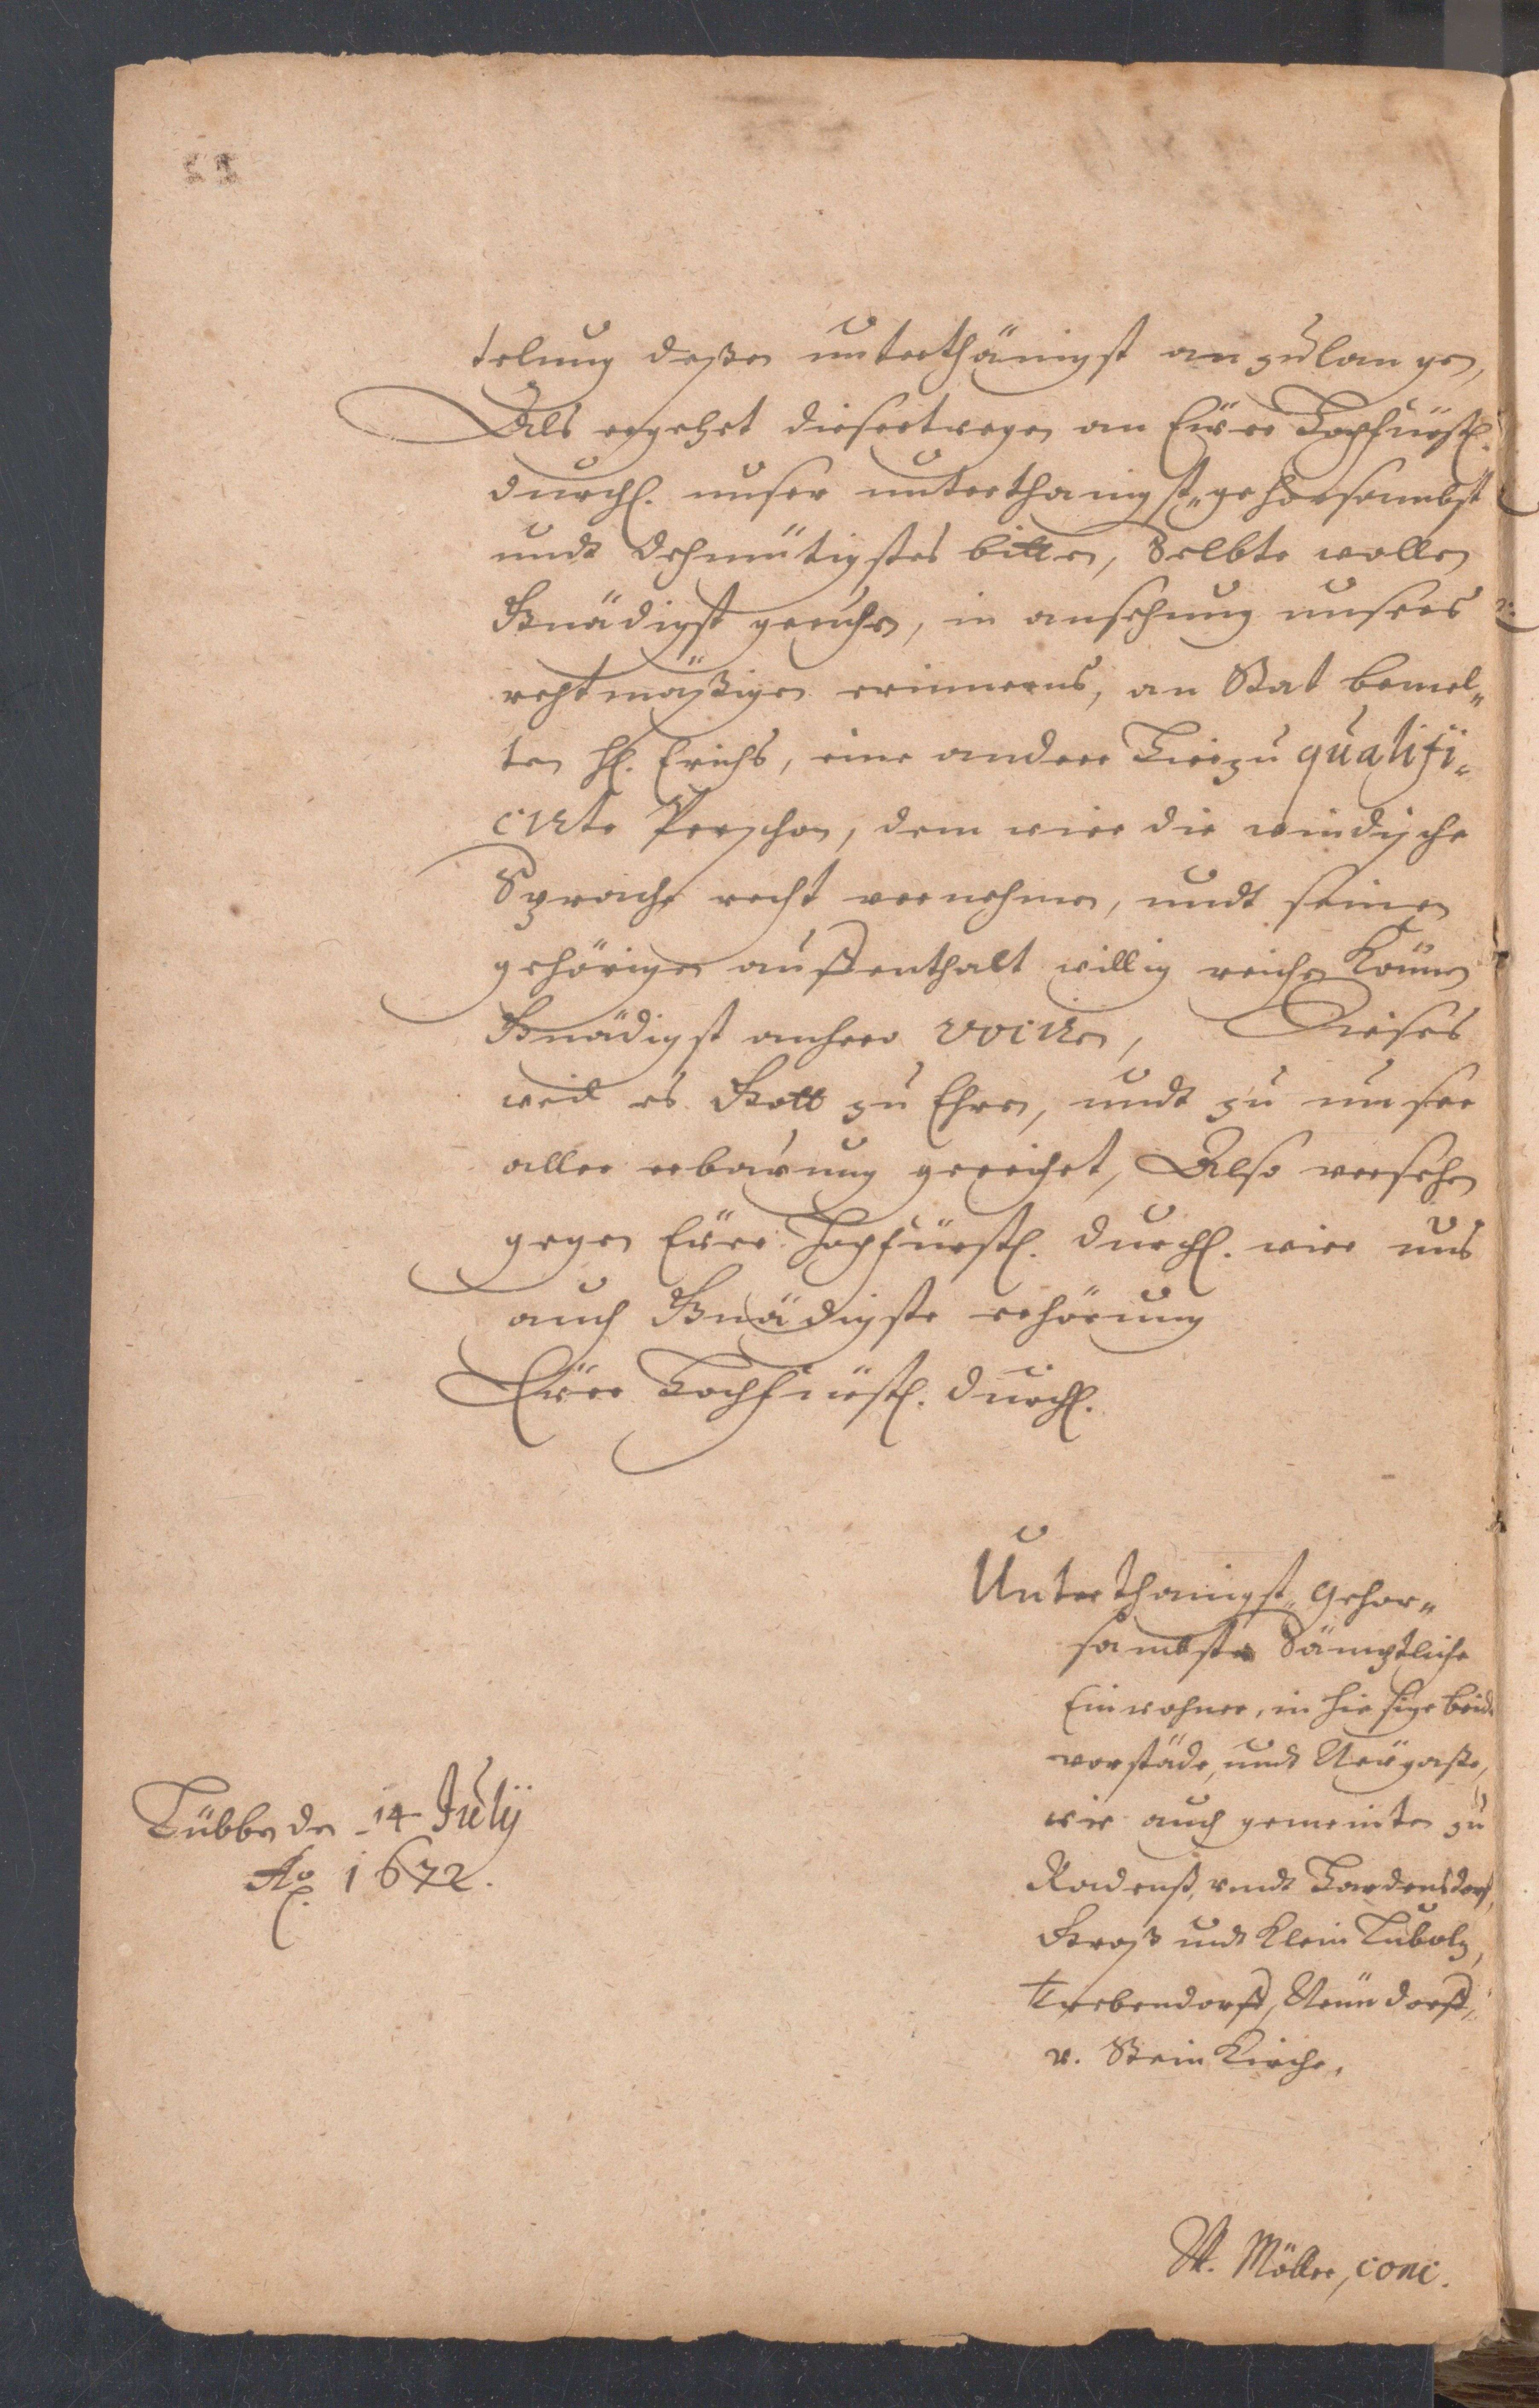 telung deßen unterthänigst anzulangen,
Als ergehet diesertwegen an Eüre Hochfürstl.
durchl. unser unterthanigst„ gehorsambst
undt dehmütigstes bitten, Selbte wollen
Gnädigst geruhen, in ansehung unsers
rechtmäßigen erinnerns, an Stat bemel„
ten H. Erichs, eine andere hierzu qualifi„
cirte Perschon, dem wier die windische
Sprache recht vernehmen, undt seinen
gehörigen auffenthalt willig reichen können
Gnädigst anhero vociren, Dieses
weil es Gott zu Ehren, undt zu unser
aller erbauung gereichet, Also versehen
gegen Eüre Hochfürstl. durchl. wier uns
auch Gnädigste erhörung
Eüre Hochfürstl. durchl.
Unterthanigst„ gehor„
sambste Sämptliche
Einwohner, in hiesige beid
vorstäde, undt Neügaße,
wie auch gemeinten zu
Radenß, undt Hardensdorf,
Groß undt Klein Lubolz,
Trebendorff, Neündorff,
v. Stein Kirche.
Lübben den 14 Julij
Ao. 1672.
M. Möller, conc.